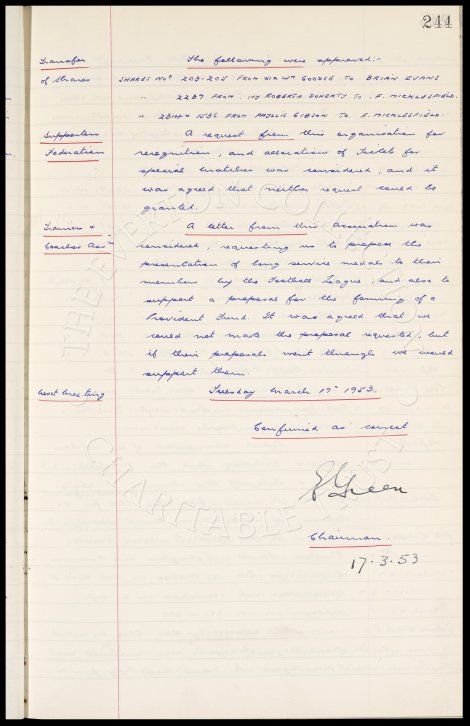 244
Transfer of Shares
The following were approved:-
SHARES Nos 203-205 FROM Wm GOODGE TO BRIAN EVANS
" 2237 FROM ROBERTA DOHERTY TO F. MICKLESFIELD.
" 23144 1586 FROM PHYLLIS GIBSON TO F. MICKLESFIELD.
Supporters Federation
A request from this organisation for
recognition, and allocation of Tickets for
special matches was considered, and it
was agreed that neither request could be
granted.
Trainers & Coaches Assn
A letter from this Association was
considered, requesting us to propose the
presentation of long service medals to their
members by the Football League, and also to
support a proposal for the forming of a
Provident Fund. It was agreed that we
could not make the proposal requested, but
if their proposals went through we would
support them.
Next Meeting
Tuesday March 17th 1953.
Confirmed as correct
E Green
Chairman.
17.3.53
THE EVERTON COLLECTION
CHARITABLE TRUST